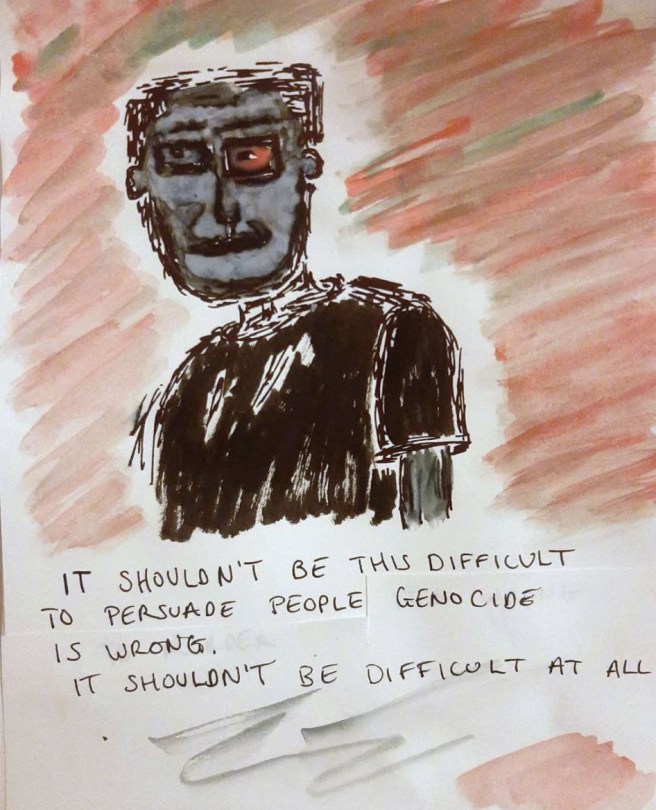 IT SHOULDN'T BE THIS DIFFICULT
TO PERSUADE PEOPLE GENOCIDE
IS WRONG.
IT SHOULDN'T BE DIFFICULT AT ALL